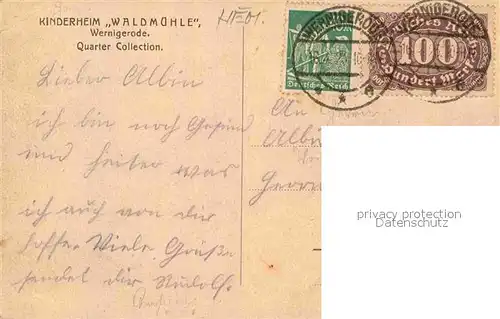 KINDERHEIM „WALDMÜHLE",
Wernigerode.
Quarter Collection.
WERNIGERODE
WERNIGERODE
100
Deutsches Reich
Lieber Albin
ich bin noch Gesund
und heiter was
ich auch von dir
hoffe. Viele Grüße
sendet dir Rudolf.
An
privacy protection
Datenschutz